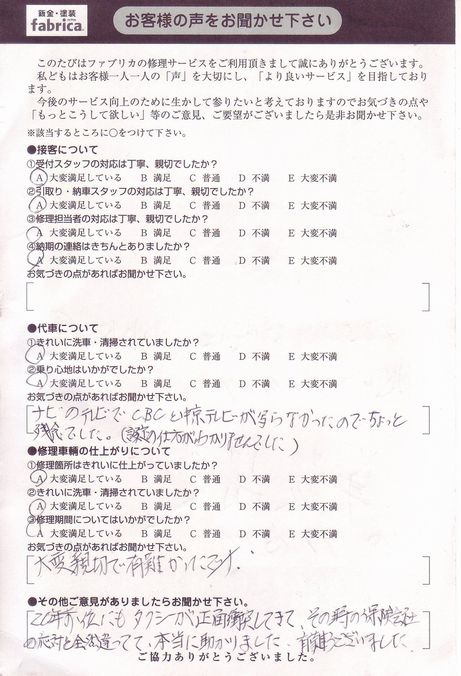 鈑金・塗装
fabrica.
お客様の声をお聞かせ下さい
このたびはファブリカの修理サービスをご利用頂きまして誠にありがとうございます。
私どもはお客様一人一人の「声」を大切にし、「より良いサービス」を目指しており
ます。
今後のサービス向上のために生かして参りたいと考えておりますのでお気づきの点や
「もっとこうして欲しい」等のご意見、ご要望がございましたら是非お聞かせ下さい。
※該当するところに○をつけて下さい。
●接客について
①受付スタッフの対応は丁寧、親切でしたか？
A 大変満足している B 満足 C 普通 D 不満 E 大変不満
②引取り・納車スタッフの対応は丁寧、親切でしたか？
A 大変満足している B 満足 C 普通 D 不満 E 大変不満
③修理担当者の対応は丁寧、親切でしたか？
A 大変満足している B 満足 C 普通 D 不満 E 大変不満
④納期の連絡はきちんとありましたか？
A 大変満足している B 満足 C 普通 D 不満 E 大変不満
お気づきの点があればお聞かせ下さい。
●代車について
①きれいに洗車・清掃されていましたか？
A 大変満足している B 満足 C 普通 D 不満 E 大変不満
②乗り心地はいかがでしたか？
A 大変満足している B 満足 C 普通 D 不満 E 大変不満
お気づきの点があればお聞かせ下さい。
ナビのテレビで CBCと中京テレビーが写らなかったのでちょっと
残念でした。(設定の仕方がわかりませんでした)
●修理車輌の仕上がりについて
①修理箇所はきれいに仕上がっていましたか？
A 大変満足している B 満足 C 普通 D 不満 E 大変不満
②きれいに洗車・清掃されていましたか？
A 大変満足している B 満足 C 普通 D 不満 E 大変不満
③修理期間についてはいかがでしたか？
A 大変満足している B 満足 C 普通 D 不満 E 大変不満
お気づきの点があればお聞かせ下さい。
大変親切で有難かったです。
●その他ご意見がありましたらお聞かせ下さい。
20年前位にもタクシーが正面衝突してきて、その時の保険会社
の応対と全然違ってて、本当に助かりました。有難うございました。
ご協力ありがとうございました。